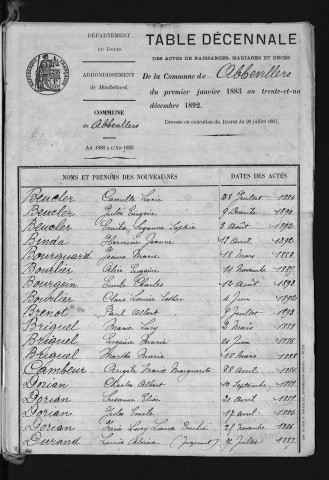 DÉPARTEMENT
du Doubs
ARRONDISSEMENT
de Montbéliard
COMMUNE
de Abbevillers
AN 1883 à l'AN 1893
TABLE DÉCENNALE
DES ACTES DE NAISSANCES, MARIAGES ET DÉCÈS
De la Commune de Abbevillers
du premier janvier 1883 au trente-et-un
décembre 1892.
Dressée en exécution du Décret du 20 juillet 1807.
NOMS ET PRÉNOMS DES NOUVEAU-NÉS DATES DES ACTES
Beucler Camille Lucie 28 Juillet 1884
Beucler Jules Eugène 1890
Beucler Emilie Suzanne Sophie 2 Août 1892
Binda Hermine Jeanne 17 Avril 1892
Bourquard Jeanne Marie 18 Mars
Bourlier Alice Eugénie 14 Novembre
Bourgoin Emile Charles Août 1892
Bourlier Clara Louise Esther 4 Juin 1892
Brenot Paul Albert Juillet
Briquel Marie Lucy 9 Mars
Briquel Eugène 21 Juin
Briquel Marthe Marie 10 Mars
Cambeur Angèle Marie Marguerite 28 Avril
Dorian Charles Albert 10 Septembre
Dorian Suzanne Elise 21 Avril
Dorian Jules Emile 17 Avril 1886
Dorian Lucy Louise Emélie 28 Novembre
Durand Louise (Jugement) Juillet 1887